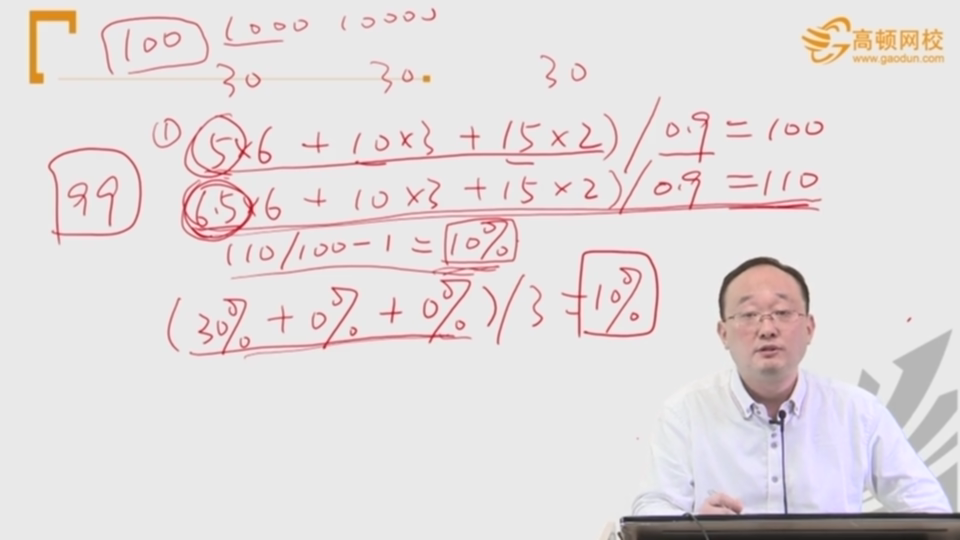 100 1000 10000
30 30 30
高顿网校
www.gaodun.com
① (5×6 + 10×3 + 15×2)/0.9 = 100
99
(6.5×6 + 10×3 + 15×2)/0.9 = 110
110/100-1 = 10%
(30% + 0% + 0%)/3 = 10%